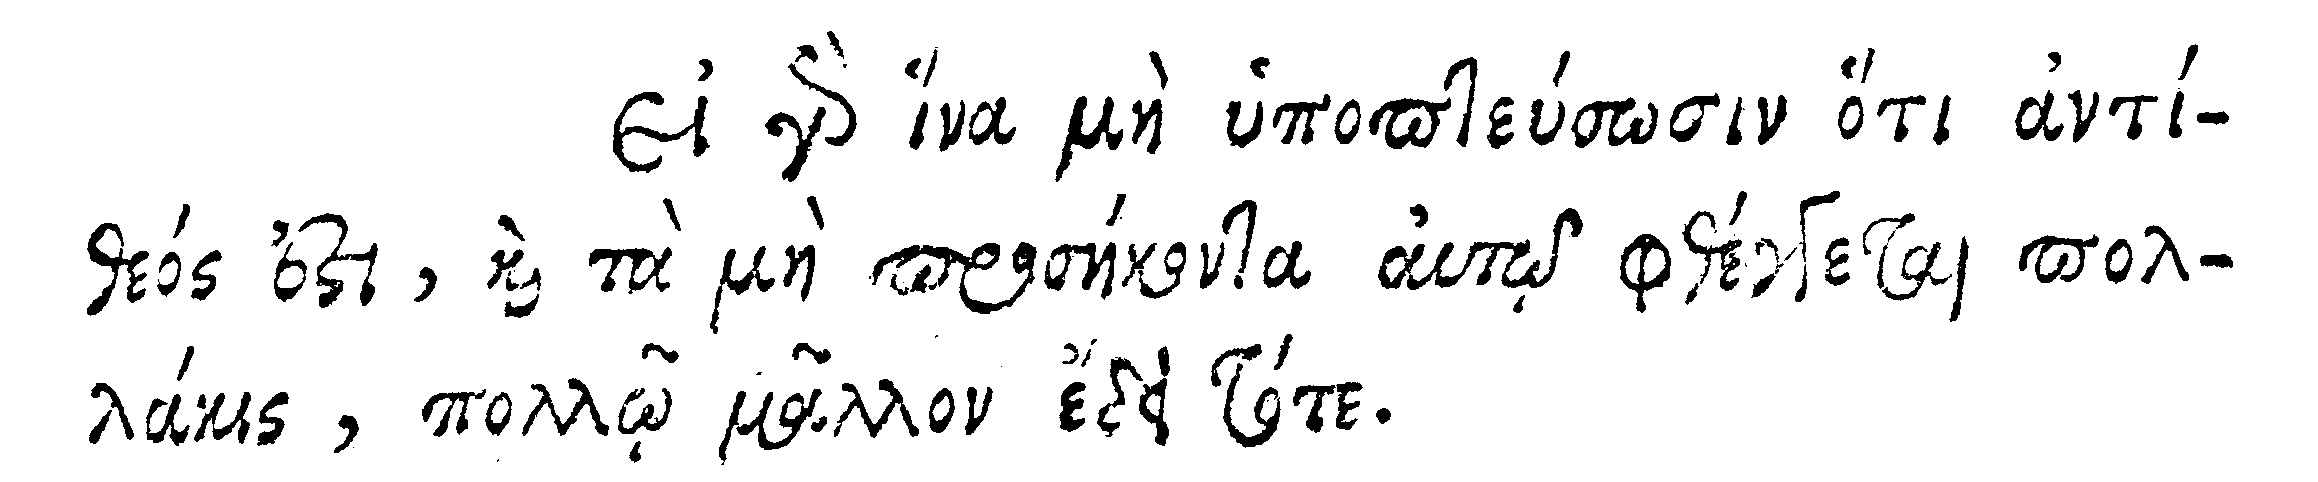 Εἰ γὰρ ἵνα μὴ ὑποπτεύσωσιν ὅτι ἀντί-
θεός ἐστι, καὶ τὰ μὴ προσήκοντα ἀυτῷ φθέγγεται πολ-
λάκις, πολλῷ μᾶλλον ἔδει τότε.